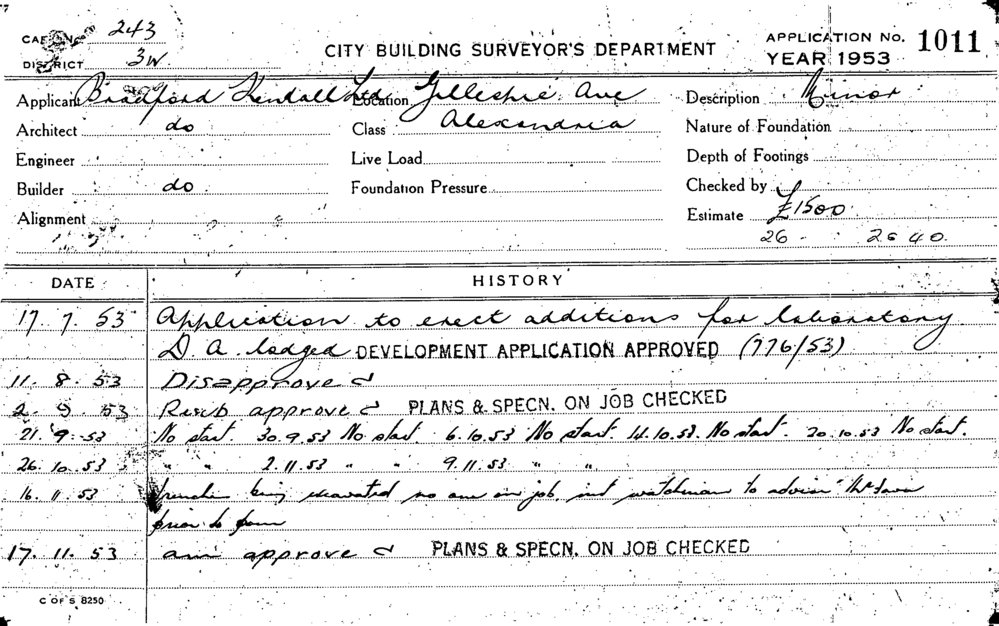 CARD No. 243
DISTRICT 3W.
CITY BUILDING SURVEYOR'S DEPARTMENT
APPLICATION No. 1011
YEAR 1953
Applicant Bradford Kendall Ltd. Location Gillespie Ave Description Minor
Architect do Class Alexandria Nature of Foundation
Engineer Live Load Depth of Footings
Builder do Foundation Pressure Checked by
Alignment Estimate £1500
26 2640
DATE HISTORY
17. 7. 53 Application to erect additions for laboratory
D. A. lodged DEVELOPMENT APPLICATION APPROVED (776/53)
11. 8. 53 Disapprove
2. 9. 53 Resub approve PLANS & SPECN. ON JOB CHECKED
21. 9. 53 No start. 30.9.53 No start 6.10.53 No start. 14.10.53. No start. 20.10.53 No start.
26. 10. 53 " " 2.11.53 " " 9.11.53 " "
16. 11. 53 being excavated no one on job, watchman to advise
prior to
17. 11. 53 approve PLANS & SPECN. ON JOB CHECKED
C OF S 8250